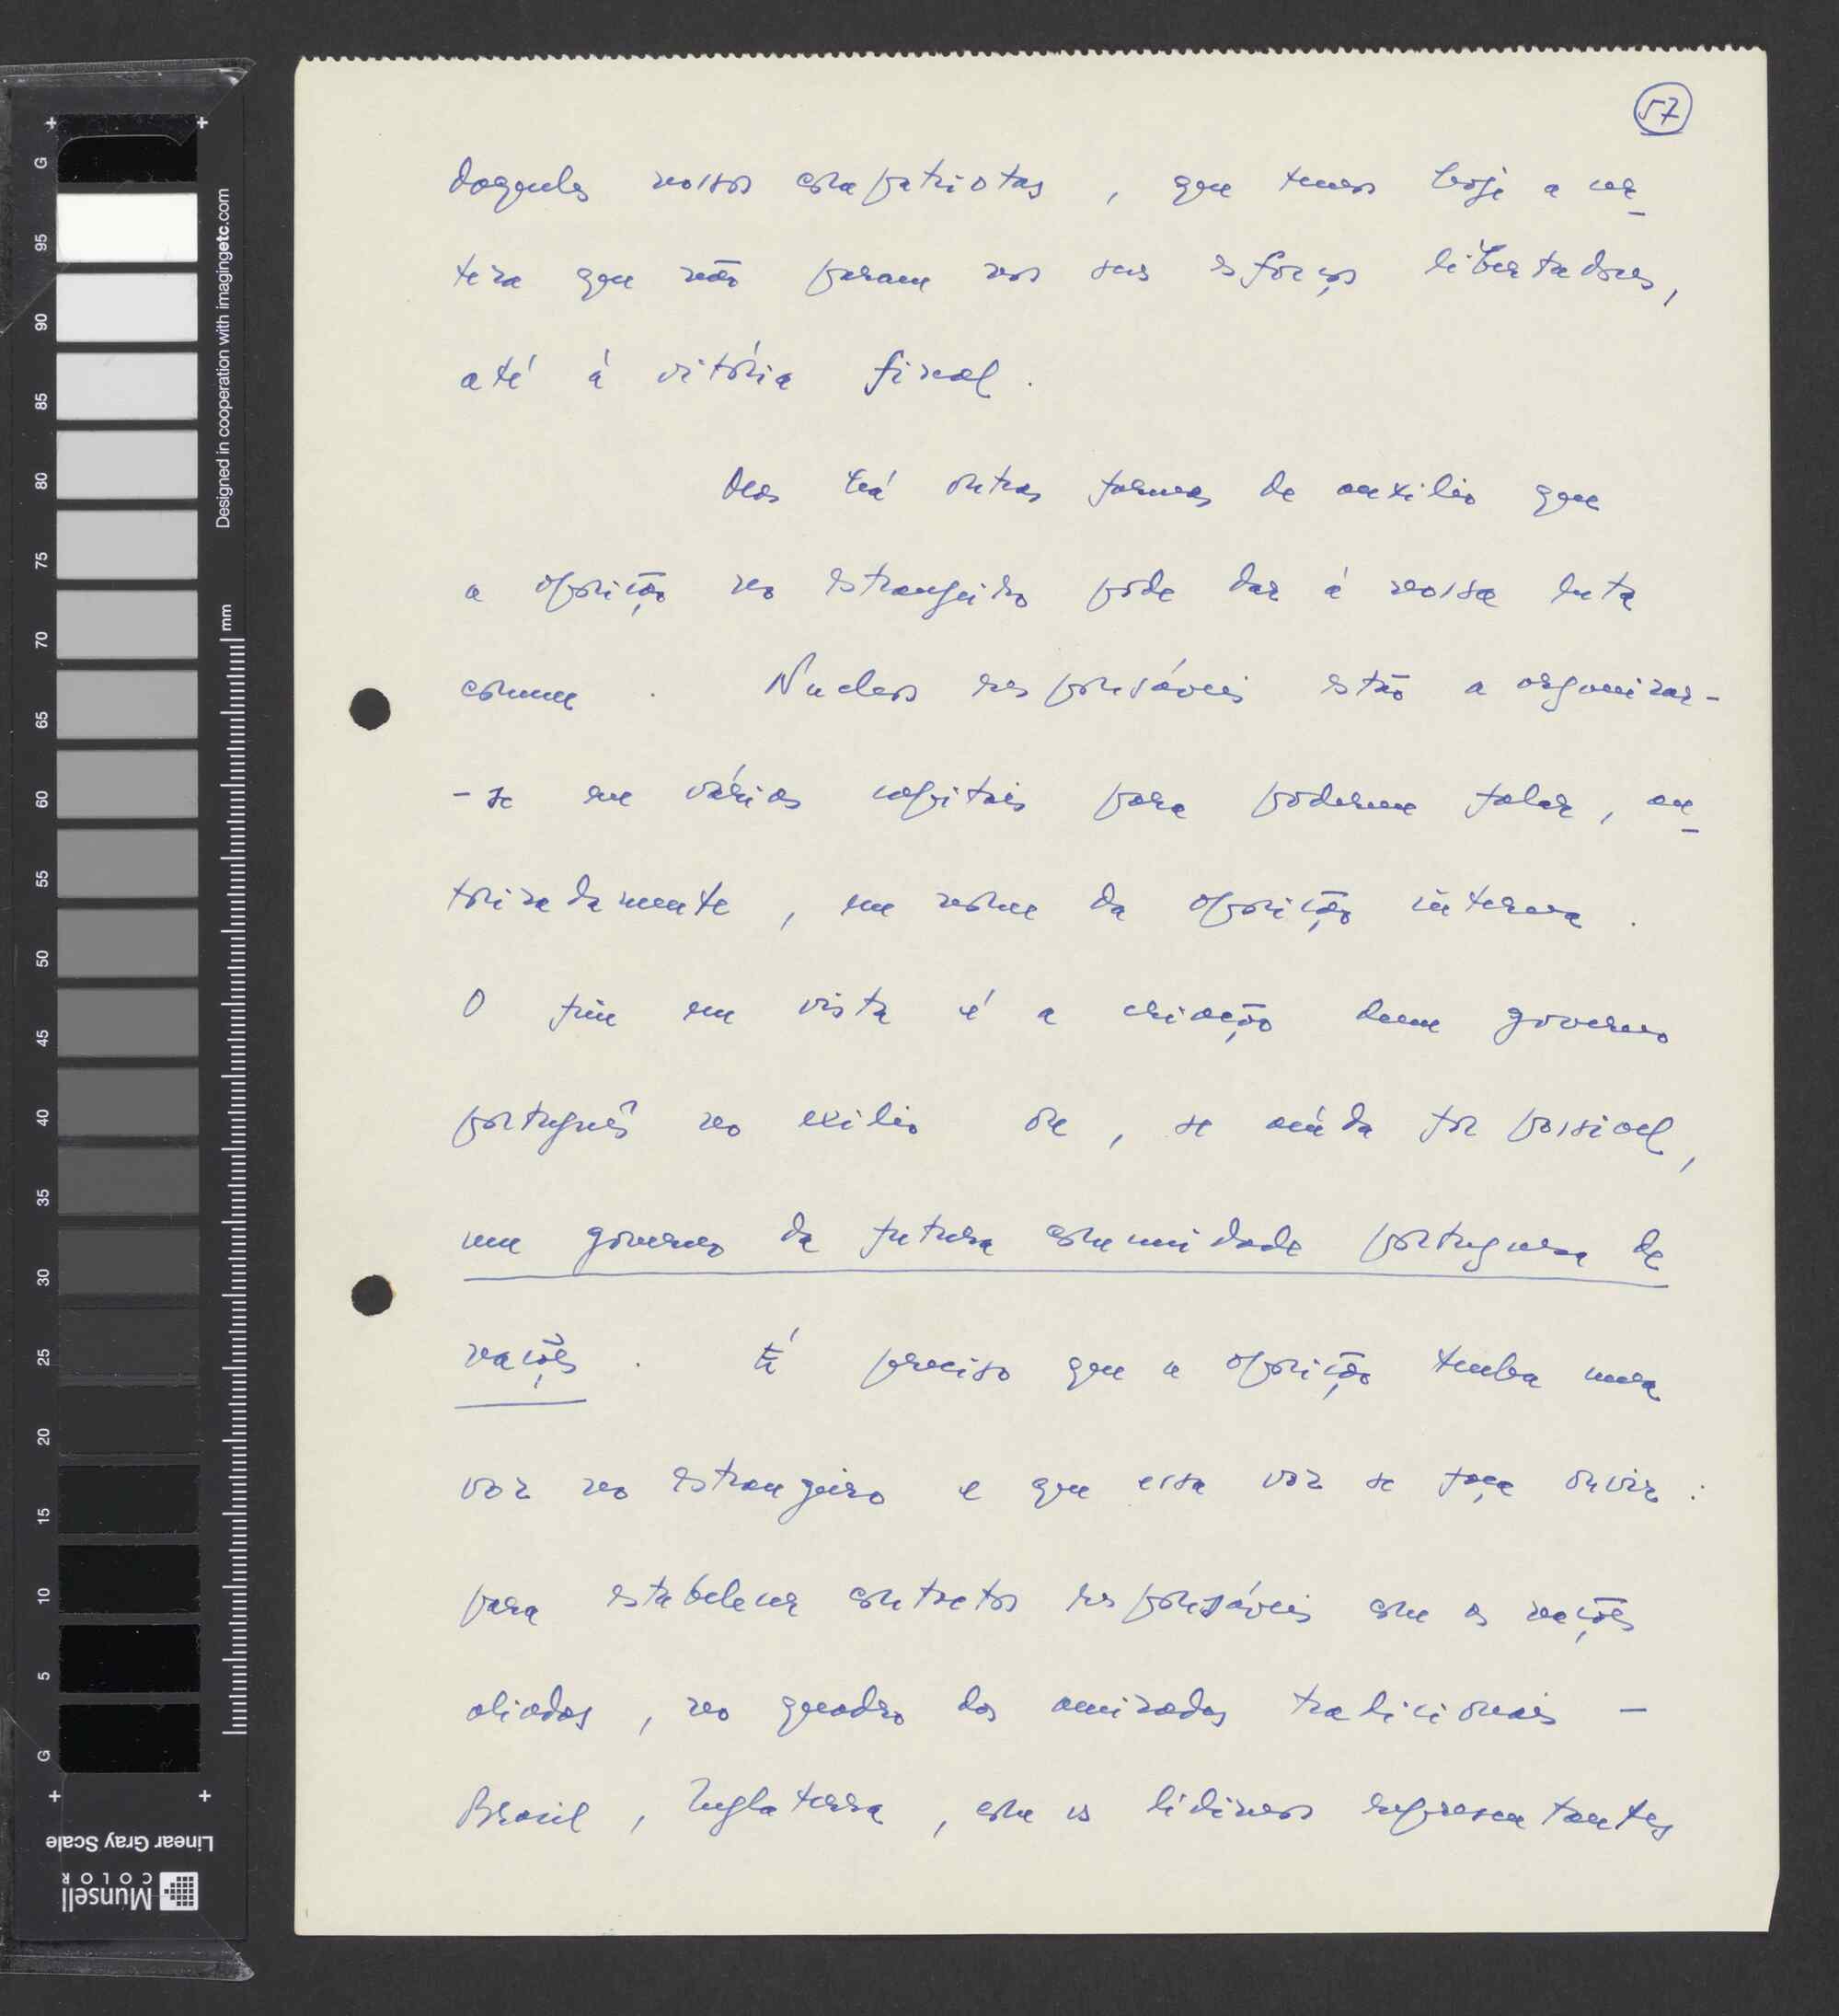 57
daqueles nossos compatriotas, que temos hoje a cer-
teza que não param nos seus esforços libertadores,
até à vitória final.
Mas há outras formas de auxilio que
a oposição no estrangeiro pode dar à nossa luta
comum. Nucleos responsáveis estão a organizar-
-se em várias capitais para poderem falar, au-
torizadamente, em nome da oposição interna.
O fim em vista é a criação dum governo
português no exilio ou, se ainda for possivel,
um governo da futura comunidade portuguesa de
nações. É preciso que a oposição tenha uma
voz no estrangeiro e que essa voz se faça ouvir:
para estabelecer contactos responsáveis com as nações
aliadas, no quadro das amizades tradicionais –
Brasil, Inglaterra, com os lidimos representantes
G 95 90 85 80 75 70 65 60 55 50 45 40 35 30 25 20 15 10 5 G
mm
Designed in cooperation with imagingetc.com
Linear Gray Scale
Munsell
COLOR